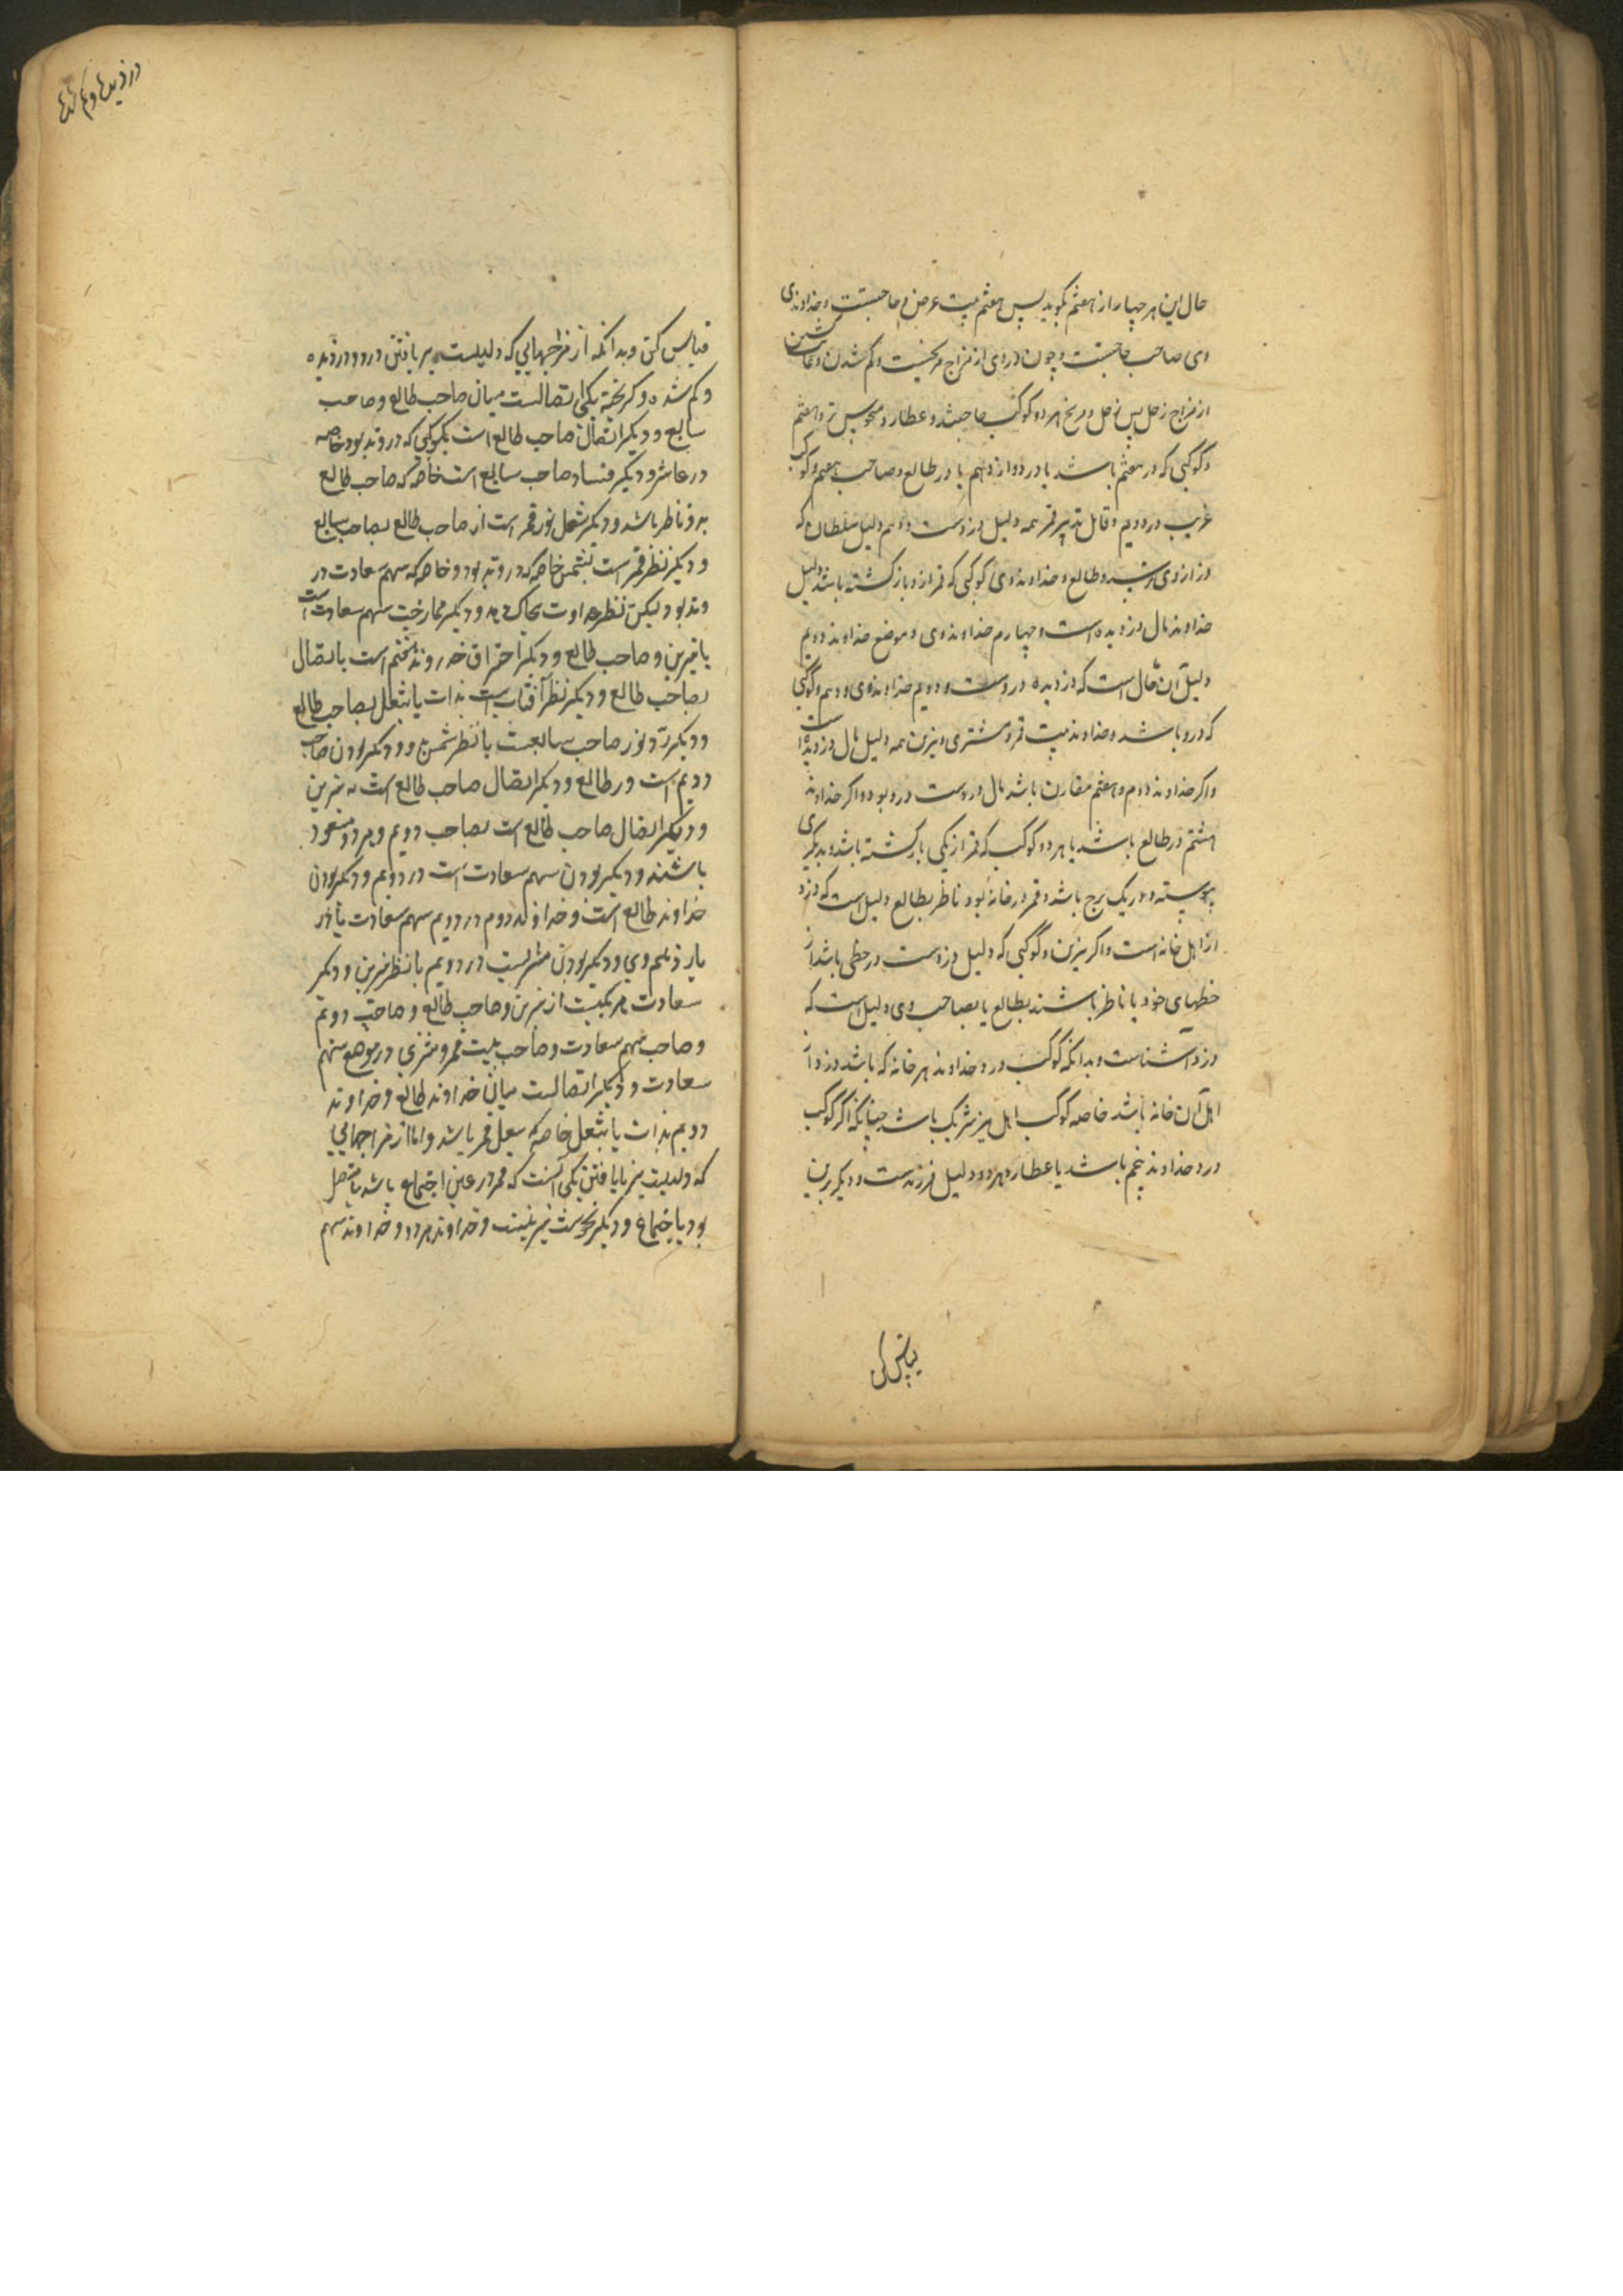 حال این هر چهار از هفتم گوید پس هفتم بیت غرض و حاجتست و خداوندی
وی صاحب حاجتست و چون دزدی از مزاج مریخیست و گم شدن و
از مزاج زحل پس زحل و مریخ هر دو کوکب حاجتند و عطارد و نحوس تر و هفتم
و کوکبی که در هفتم باشد یا در دوازدهم یا در طالع و صاحب هفتم و کوکب
غریب در دویم و قابل تدبیر قمر همه دلیل دزدست و دهم دلیل سلطان که
دزد ازوی ترسد و طالع و خداوند وی کوکبی که قمر ازو بازگشته باشد دلیل
خداوند مال دزدیده است و چهارم خداوند وی و موضع خداوند دویم
دلیل آن مال است که دزدیده دروست و دویم خداوند وی و دهم و کوکبی
که درو باشد و خداوند بیت قمر و مشتری و نیرین همه دلیل مال دزدیده است
و اگر خداوند دوم و هفتم مقارن باشد مال دروست درو بود و اگر خداوند
هشتم در طالع باشد یا هر دو کوکب که قمر از یکی بازگشته باشد و بدیگری
پیوسته در یک برج باشد و قمر در خانه بود ناظر بطالع دلیل است که دزد
از اهل خانه است و اگر نیرین و کوکبی که دلیل دزدست در حظی باشد از
حظهای خود یا ناظر باشند بطالع یا بصاحب وی دلیل است که
دزد آشناست و بدانکه کوکب دزد خداوند هر خانه که باشد دزد از
اهل آن خانه باشد خاصه کوکب اهل نیز شریک باشد چنانکه اگر کوکب
دزد خداوند پنجم باشد یا عطارد هر دو دلیل فرزندست و دیگر برین
قیاس کن
در دزدیده و گم شده
قیاس کن و بدانکه از مزاجهایی که دلیلست بر یافتن دزد و دزدیده
و گم شده و گریخته یکی اتصالست میان صاحب طالع و صاحب
سابع و دیگر اتصال صاحب طالع است بکوکبی که در وتد بود خاصه
در عاشر و دیگر فساد صاحب سابع است خاصه که صاحب طالع
بدو ناظر باشد و دیگر نقل نور قمر است از صاحب طالع بصاحب سابع
و دیگر نظر قمر است بشمس خاصه که در وتد بود و خاصه که سهم سعادت در
وتد بود لیکن نظر عداوت و دیگر ممازجت سهم سعادت است
با نیرین و صاحب طالع و دیگر احتراق خداوند هفتم است با اتصال
بصاحب طالع و دیگر نظر آفتاب است بذات یا بنقل بصاحب طالع
و دیگر رد نور صاحب سابعست با نظر شمس و دیگر بودن صاحب
دویم است در طالع و دیگر اتصال صاحب طالع است به نیرین
و دیگر اتصال صاحب طالع است بصاحب دویم و هر دو مسعود
باشند و دیگر بودن سهم سعادت است در دویم و دیگر بودن
خداوند طالع است و خداوند دوم در دویم سهم سعادت یا در
یازدهم وی و دیگر بودن مشتریست در دویم با نظر نیرین و دیگر
سعادت مرکبیت از نیرین و صاحب طالع و صاحب دویم
و صاحب سهم سعادت و صاحب بیت قمر و مشتری در موضع سهم
سعادت و دیگر اتصالست میان خداوند طالع و خداوند
دویم بذات یا بنقل خاصه که بنقل قمر باشد و اما از مزاجهایی
که دلیلست بر نایافتن یکی آنست که قمر در عین اجتماع باشد یا متصل
بود باجتماع و دیگر نحوست نیرینست و خداوند هر دو و خداوند سهم